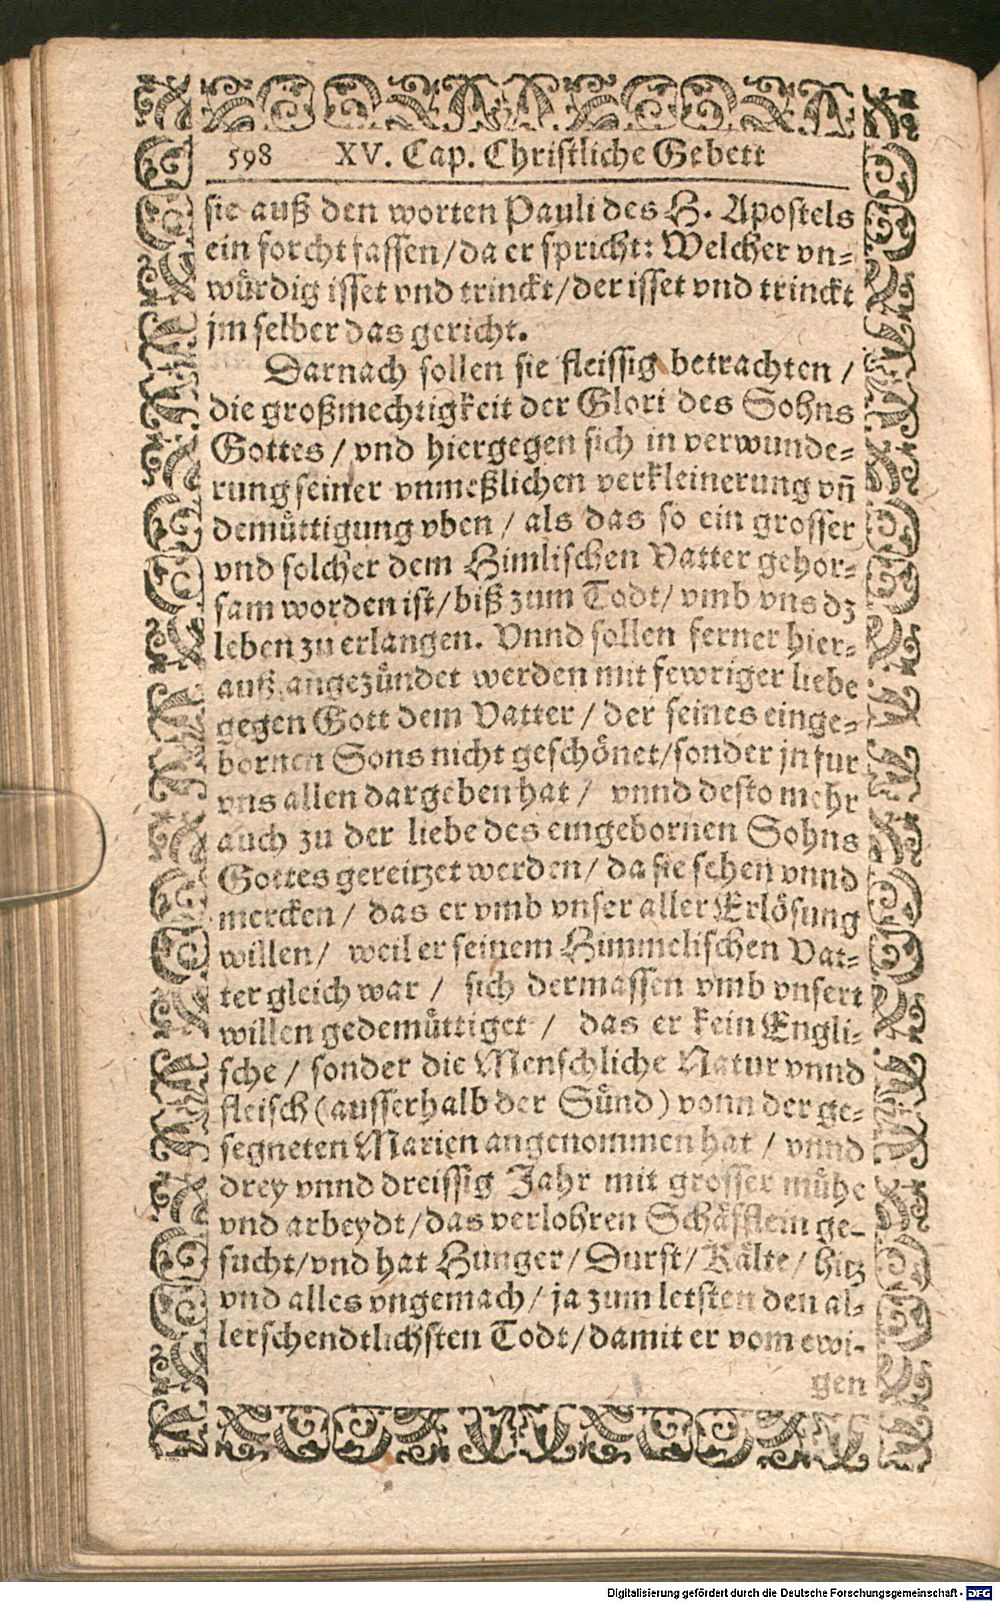 598 XV. Cap. Christliche Gebett
sie auß den worten Pauli des H. Apostels
ein forcht fassen/da er spricht: Welcher vn-
würdig isset vnd trinckt/der isset vnd trinckt
jm selber das gericht.
Darnach sollen sie fleissig betrachten /
die großmechtigkeit der Glori des Sohns
Gottes / vnd hiergegen sich in verwunde-
rung seiner vnmeßlichen verkleinerung vñ
demüttigung vben / als das so ein grosser
vnd solcher dem Himlischen Vatter gehor-
sam worden ist/biß zum Todt/ vmb vns dz
leben zu erlangen. Vnnd sollen ferner hier-
auß angezündet werden mit fewriger liebe
gegen Gott dem Vatter / der seines einge-
bornen Sons nicht geschönet/sonder jn fur
vns allen dargeben hat / vnnd desto mehr
auch zu der liebe des eingebornen Sohns
Gottes gereitzet werden/ da sie sehen vnnd
mercken / das er vmb vnser aller Erlösung
willen/ weil er seinem Himmelischen Vat-
ter gleich war / sich dermassen vmb vnsert
willen gedemüttiget / das er kein Engli-
sche / sonder die Menschliche Natur vnnd
fleisch (ausserhalb der Sünd) vonn der ge-
segneten Marien angenommen hat / vnnd
drey vnnd dreissig Jahr mit grosser mühe
vnd arbeydt/das verlohren Schäfflein ge-
sucht/vnd hat Hunger/Durst/Kälte/hitz
vnd alles vngemach/ ja zum letsten den al-
lerschendtlichsten Todt/damit er vom ewi-
gen
Digitalisierung gefördert durch die Deutsche Forschungsgemeinschaft - DFG